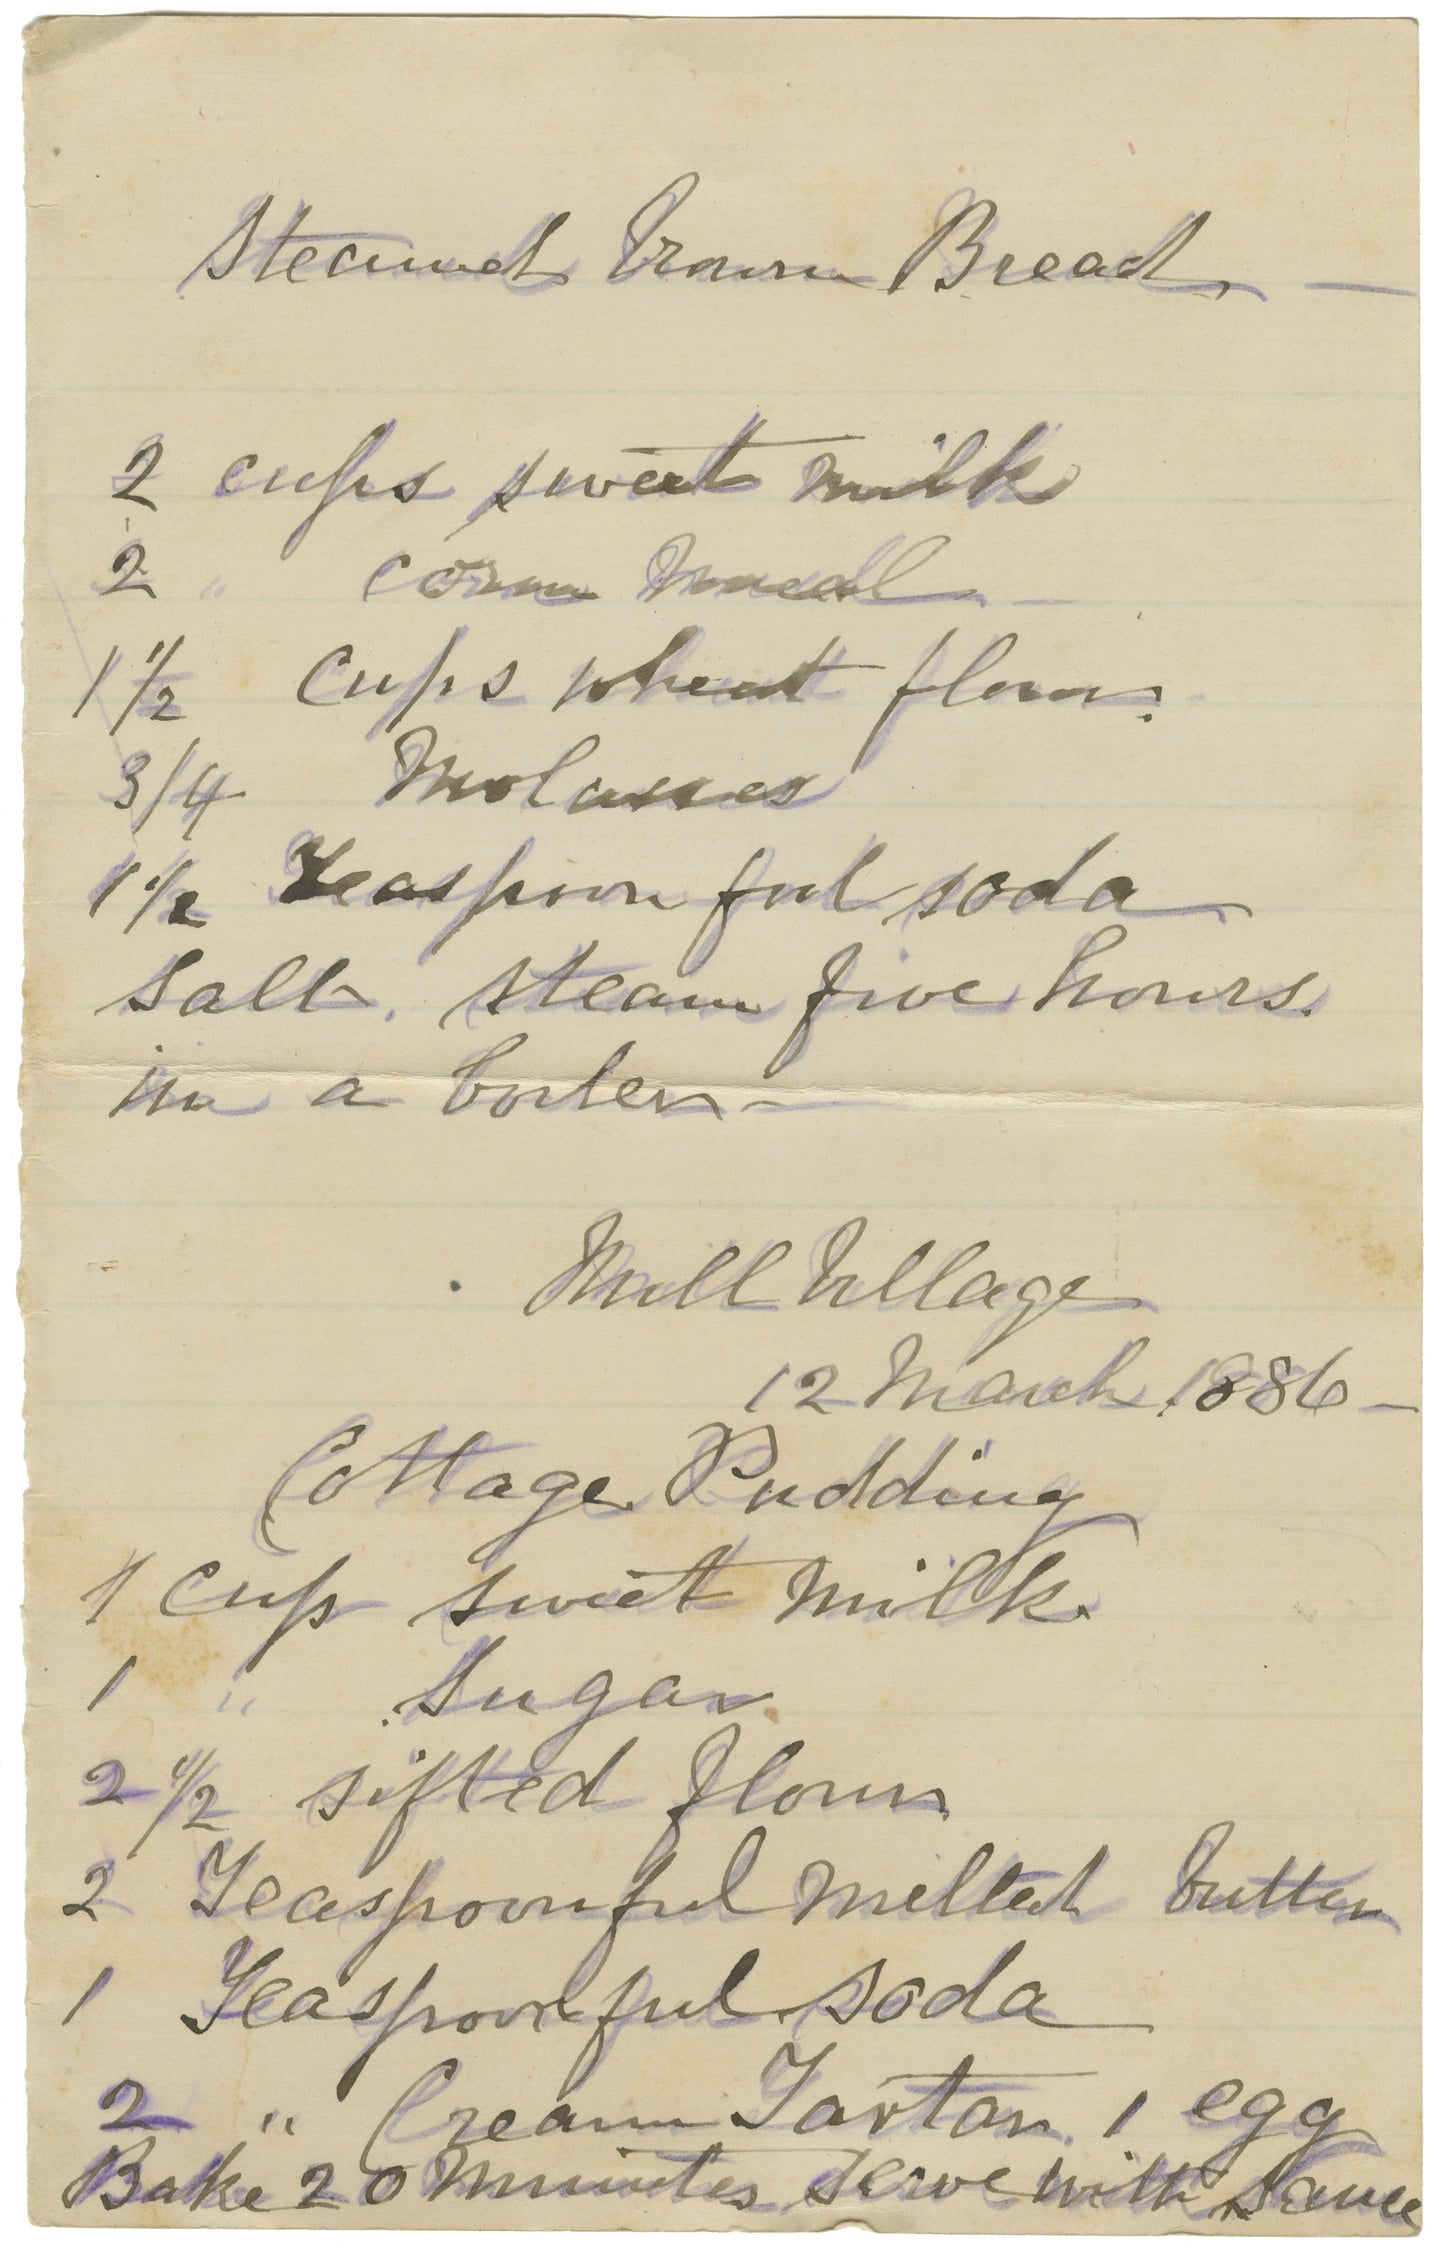 Steamed brown Bread —
2 cups sweet milk
2 " corn Meal —
1 1/2 cups wheat flour.
3/4 Molasses
1 1/2 Teaspoonful soda
Salt. steam five hours.
in a boiler —
Mill Village
12 March 1886 —
Cottage Pudding
1 cup sweet milk.
1 " Sugar
2 1/2 sifted flour
2 Teaspoonful melted butter
1 Teaspoonful soda
2 " Cream Tartar. 1 egg
Bake 20 Minutes serve with sauce